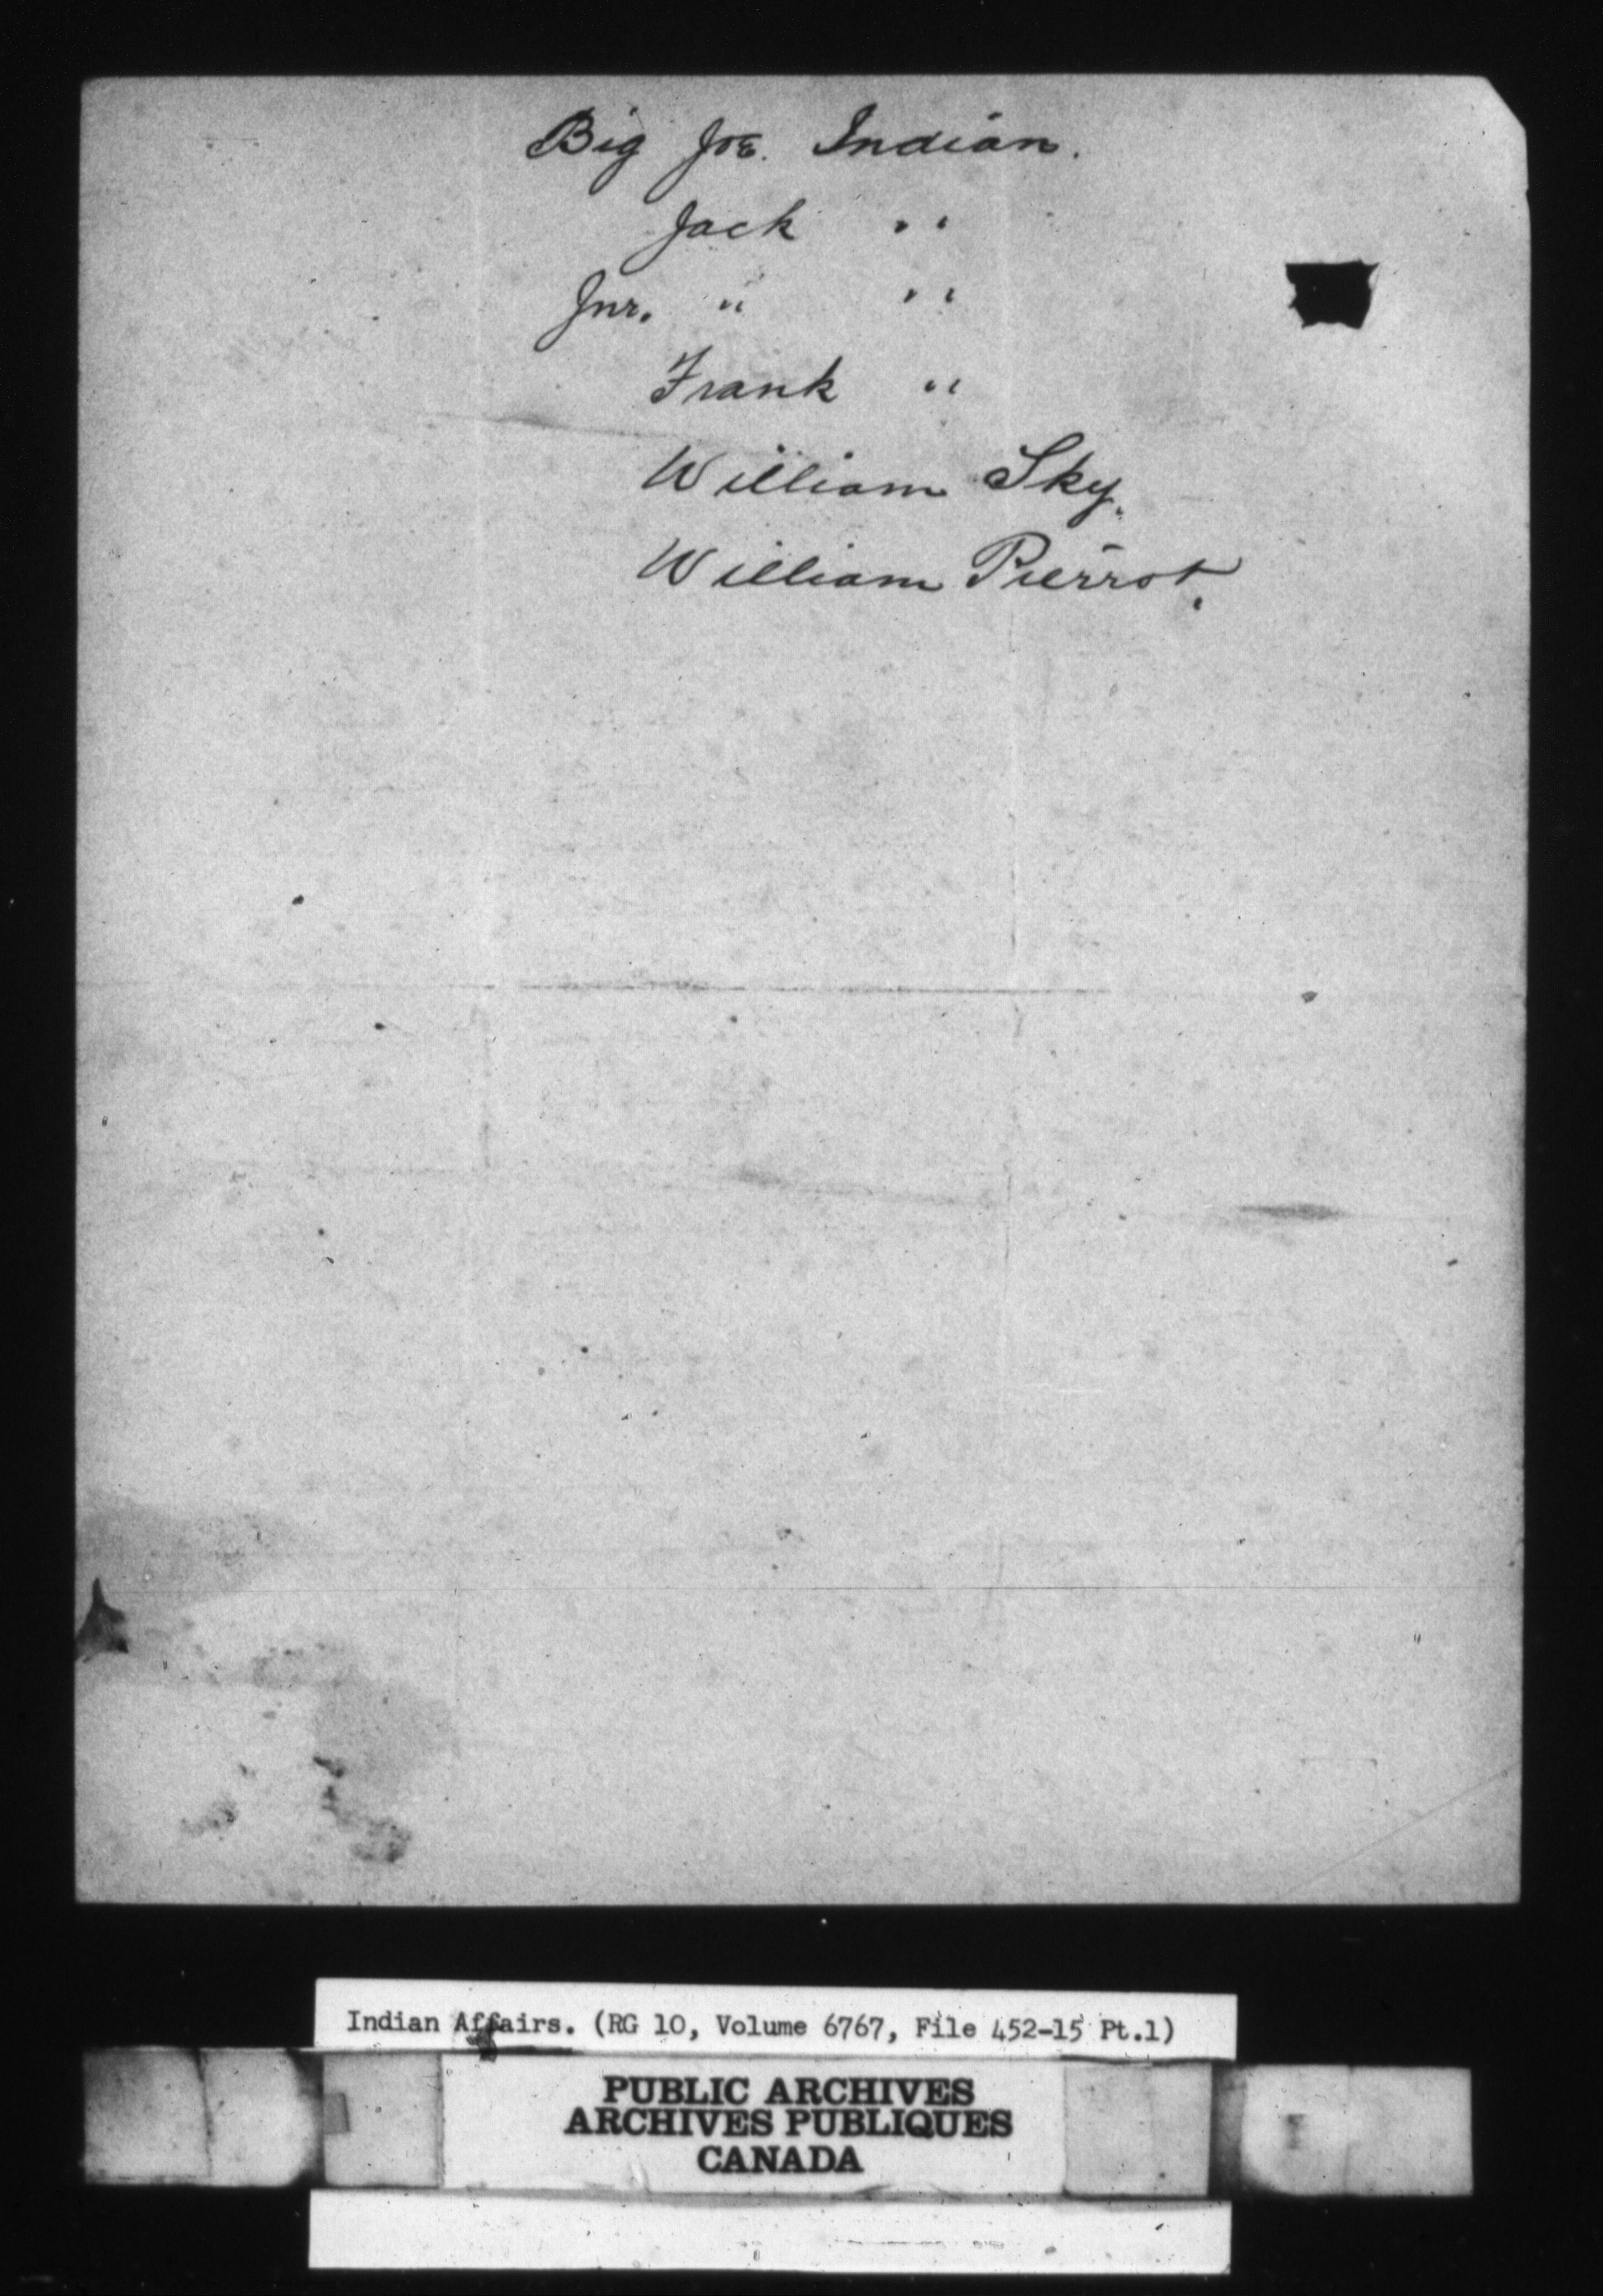 Big Joe. Indian.
Jack " "
Jnr. " "
Frank "
William Sky.
William Pierrot.
Indian Affairs. (RG 10, Volume 6767, File 452-15 Pt.1)
PUBLIC ARCHIVES
ARCHIVES PUBLIQUES
CANADA